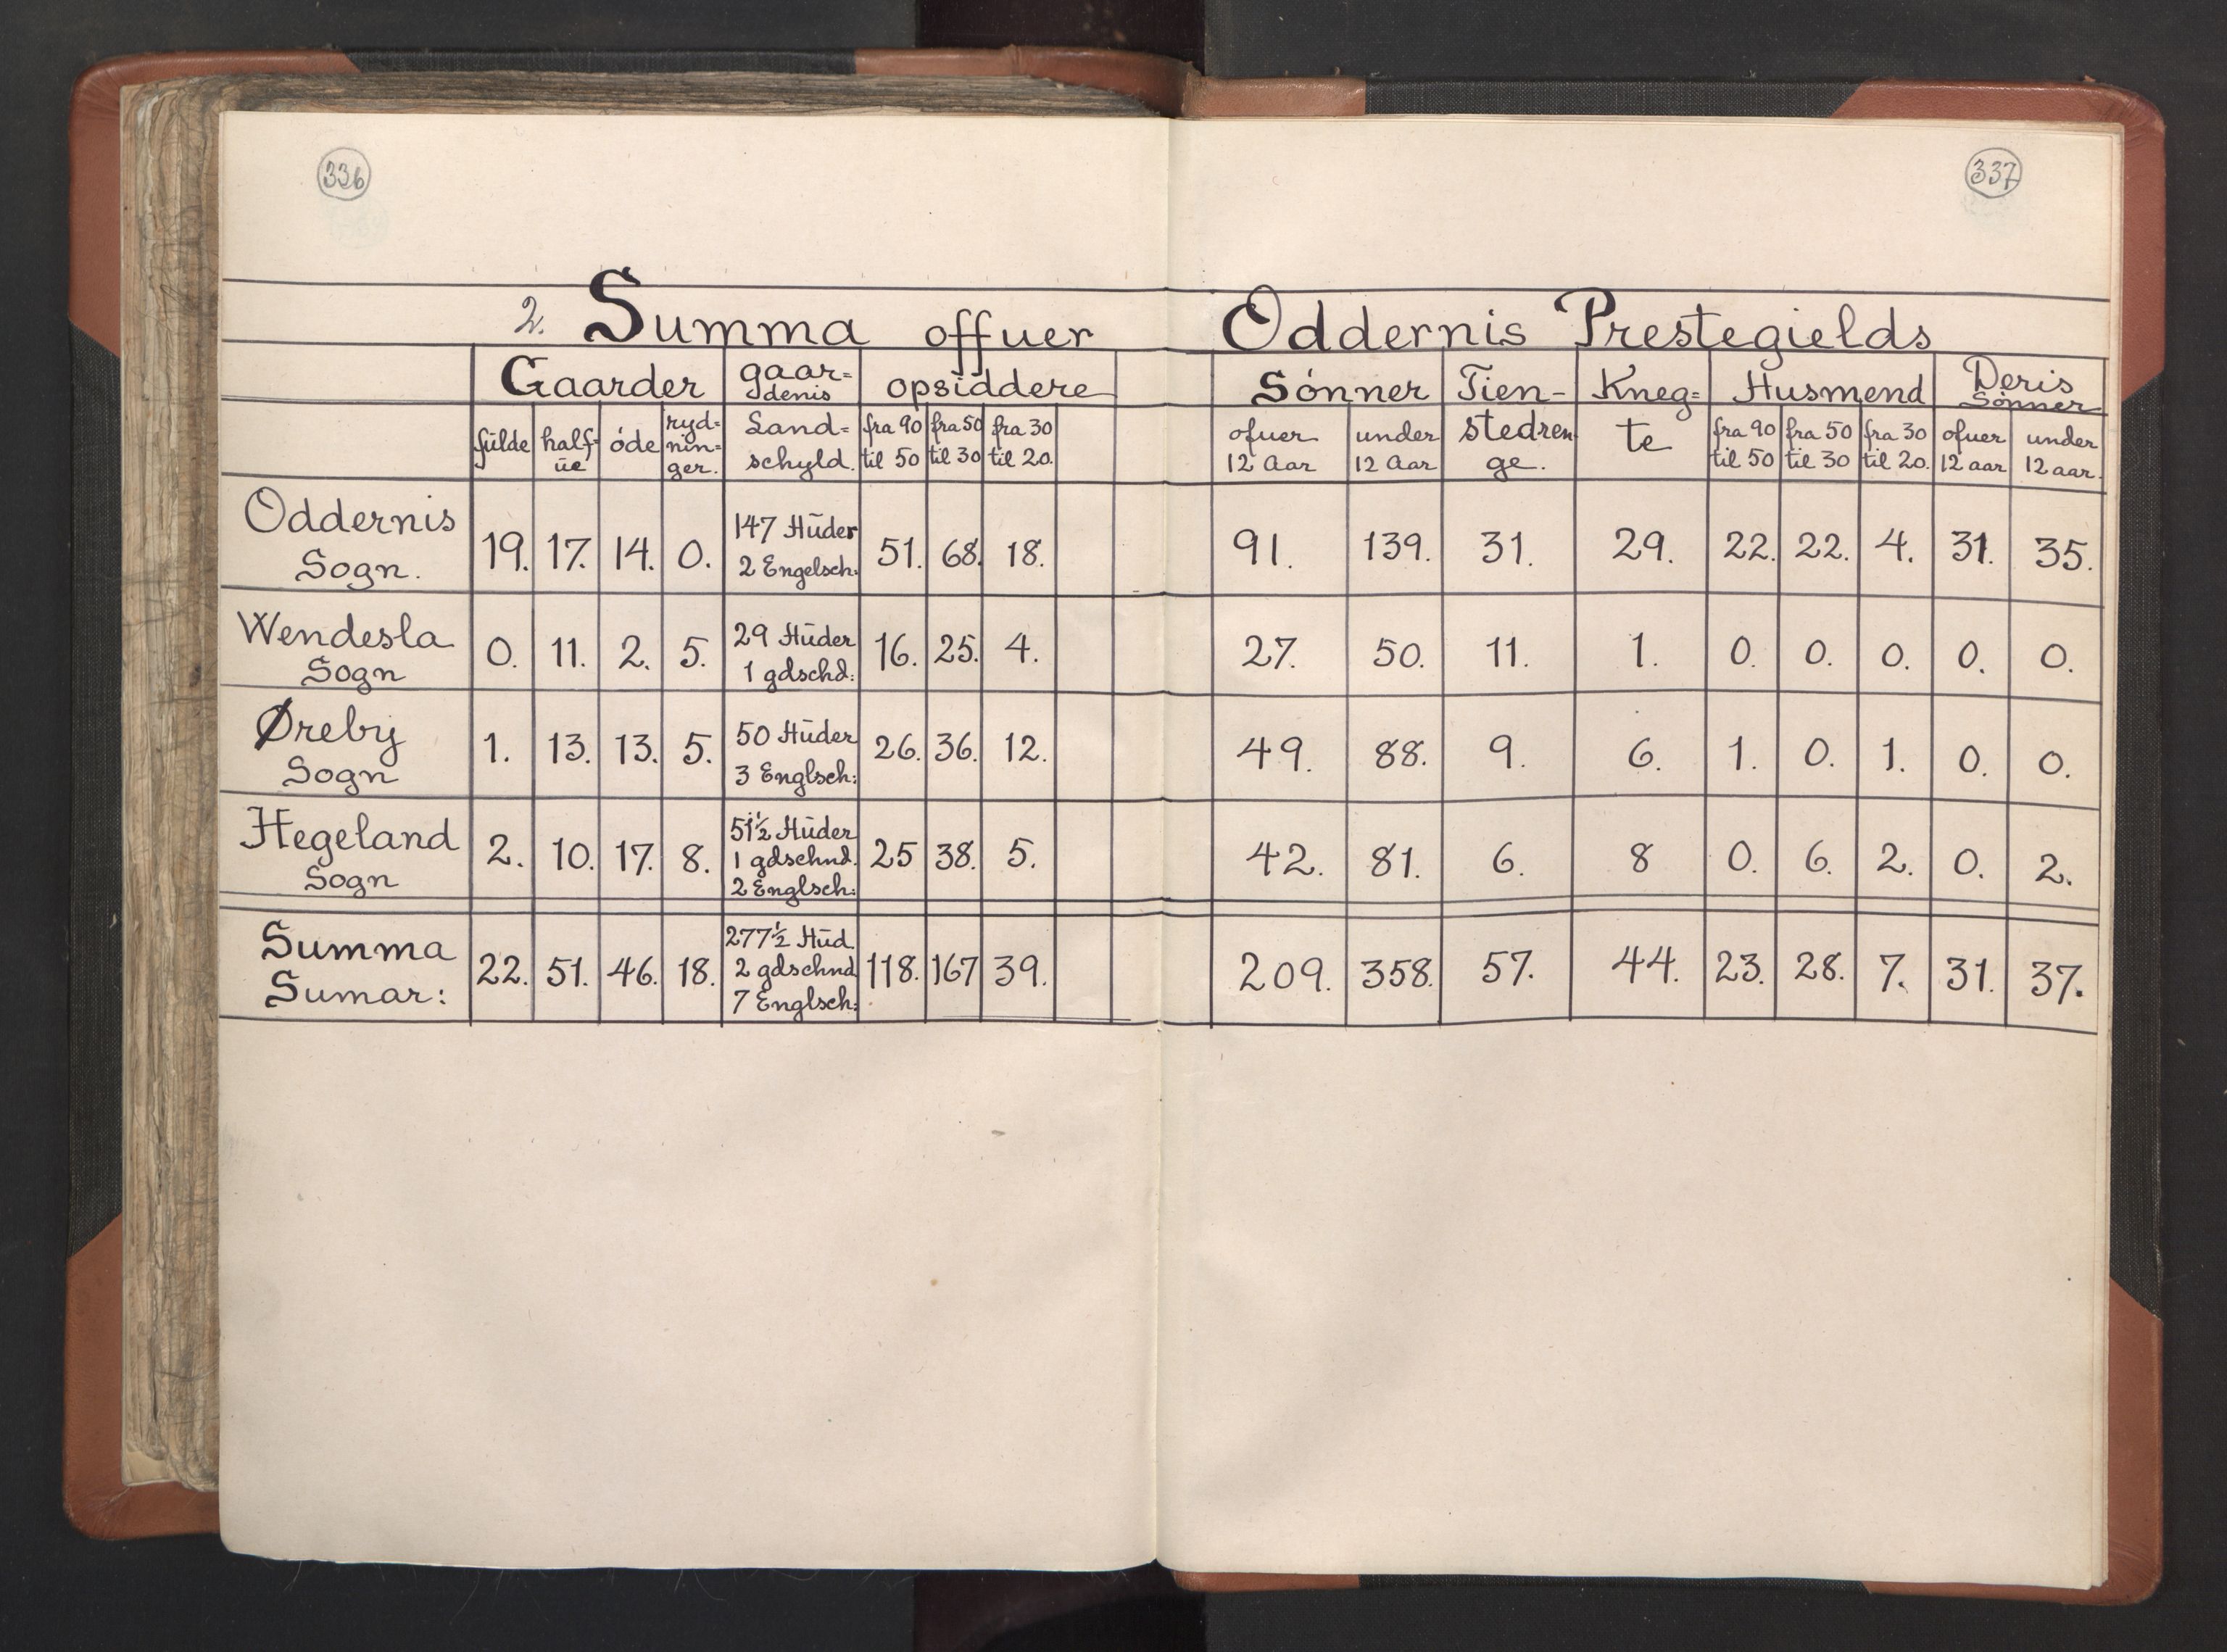 336
337
2. Summa offuer Oddernis Prestegields
Gaarder gaar= denis opsiddere Sónner Tien- Kneg= Husmend Deris Sónner
fulde half= ue óde ryd= nin= ger. Land= schyld. fra 90 til 50 fra 50 til 30 fra 30 til 20. ofuer 12 Aar under 12 Aar stedren ge. te fra 90 til 50 fra 50 til 30 fra 30 til 20. ofuer 12 aar under 12 aar.
Oddernis Sogn. 19. 17. 14. 0. 147 Huder 2 Engelsch: 51. 68. 18. 91. 139. 31. 29. 22. 22. 4. 31. 35.
Wendesla Sogn 0. 11. 2. 5. 29 Huder 1 gdschd: 16. 25. 4. 27. 50. 11. 1. 0. 0. 0. 0. 0.
Øreby Sogn 1. 13. 13. 5. 50 Huder 3 Englsch: 26. 36. 12. 49. 88. 9. 6. 1. 0. 1. 0. 0.
Hegeland Sogn 2. 10. 17. 8. 51½ Huder 1 gdschnd. 2 Englsch: 25 38. 5. 42. 81. 6. 8 0. 6. 2. 0. 2.
Summa Sumar: 22. 51. 46. 18. 277½ Hud. 2 gdschnd 7 Englsch: 118. 167 39. 209. 358. 57. 44. 23. 28. 7. 31. 37.